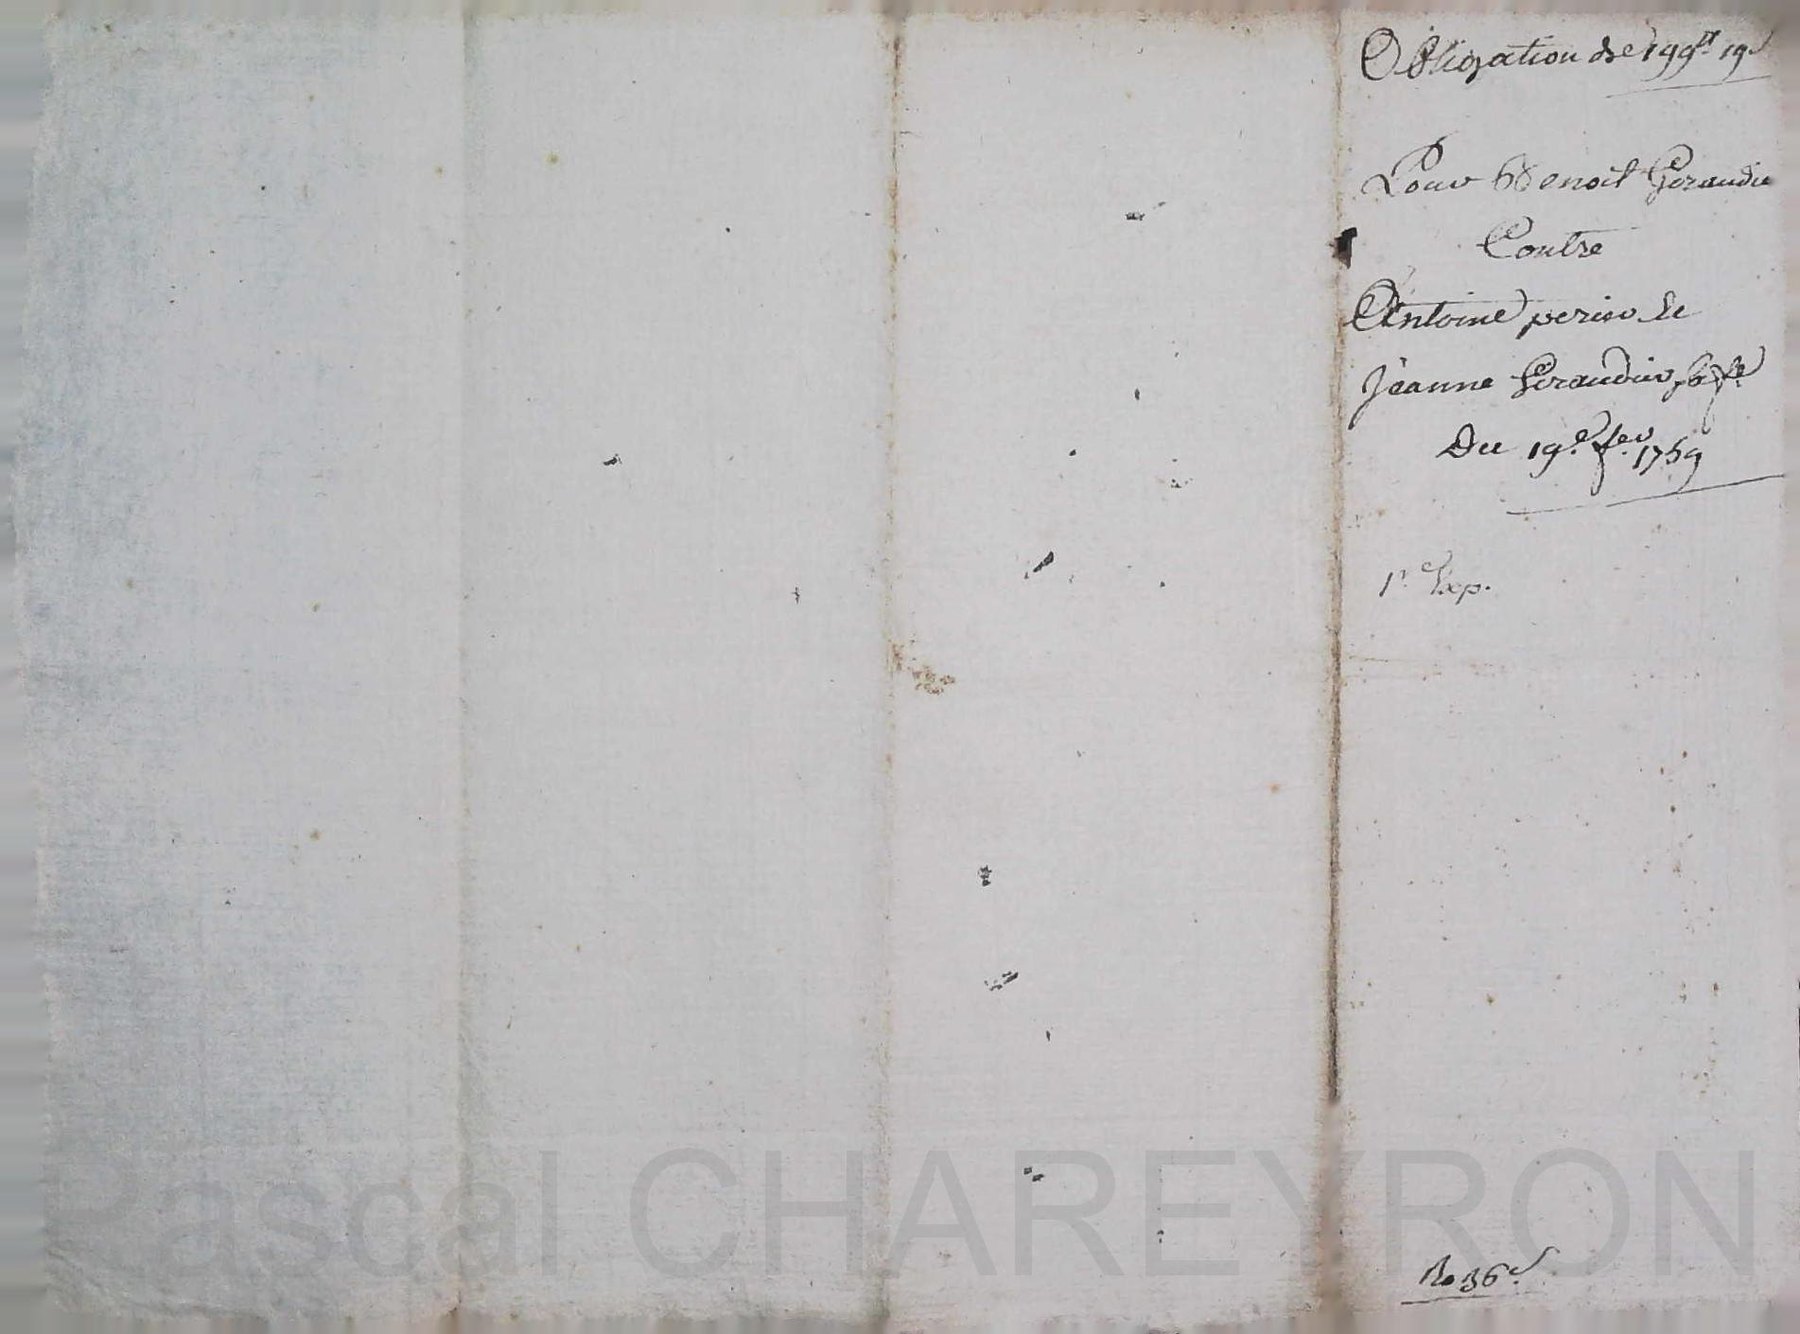 Obligation de 199ᵗᵗ 19ˢ
Pour Benoit Geraudie
Contre
Antoine perier &
Jeanne Geraudie sa fᵉ
Du 19.ᵉ feᵛ. 1759
1ʳ. Exp.
R. 36ˢ.
Pascal CHAREYRON